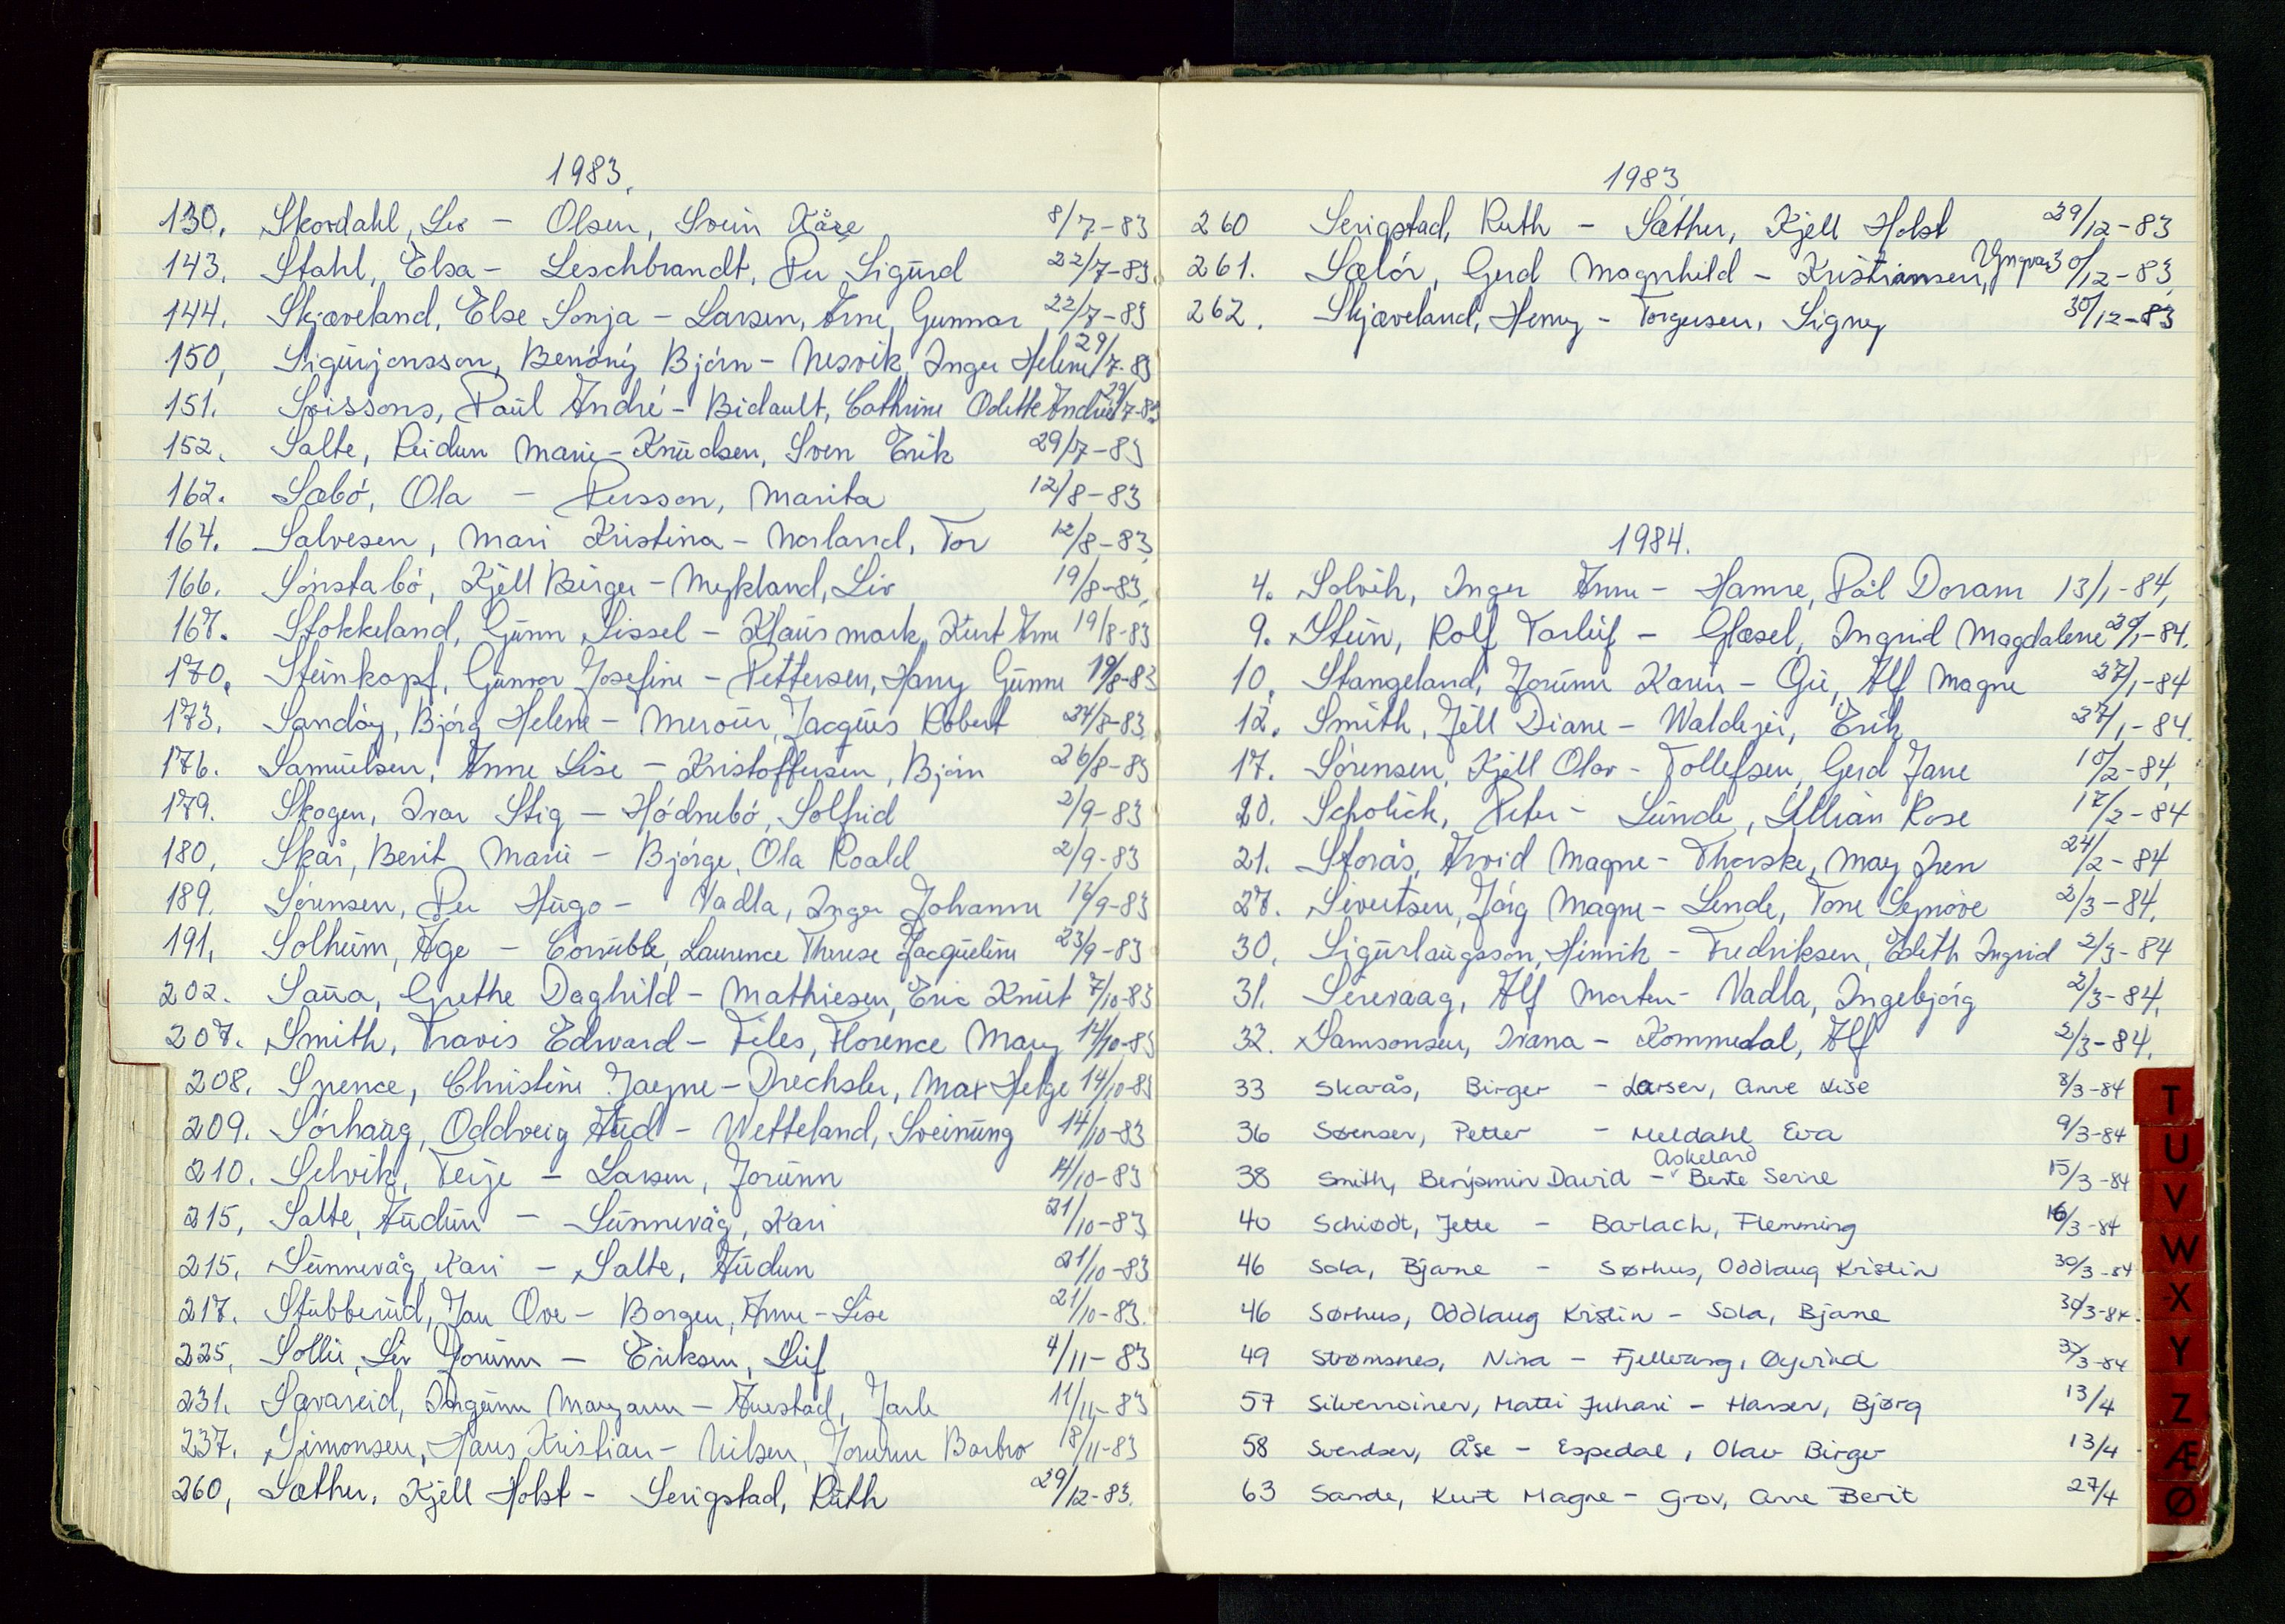 1983.
130. Skordahl, Liv - Olsen, Svein Kåre 8/7-83
143. Stahl, Elsa - Leschbrandt, Per Sigurd 22/7-83.
144. Skjæveland, Else Sonja - Larsen, Arne Gunnar 22/7-83
150, Sigurjonsson, Benóný Björn - Nesvik, Inger Helene 29/7-83
151. Soissons, Paul André - Bidault, Cathrine Odette Andrée 29/7-83
152. Salte, Reidun Marie - Knudsen, Sven Erik 29/7-83
162. Sæbö, Ola - Persson, Marita 12/8-83
164. Salvesen, Mari Kristina - Norland, Tor 12/8-83
166. Sönstabö, Kjell Birger - Mykland, Liv 19/8-83.
167. Stokkeland, Gunn Sissel - Klausmark, Kurt Arne 19/8-83
170. Steinkopf, Gunvor Josefine - Pettersen, Harry Gunne 19/8-83
173. Sandöy, Björg Helene - Merour, Jacques Robert 24/8-83
176. Samuelsen, Anne Lise - Kristoffersen, Björn 26/8-83
179. Skogen, Ivar Stig - Hödnebö, Solfrid 2/9-83
180, Skår, Berit Marie - Björge, Ola Roald 2/9-83
189. Sörensen, Per Hugo - Vadla, Inger Johanne 16/9-83
191, Solheim, Åge - Corruble, Laurence Therese Jacqueline 23/9-83
202. Saua, Grethe Daghild - Mathiesen, Eric Knut 7/10-83
207. Smith, Travis Edward - Files, Florence Mary 14/10-83
208. Spence, Christine Jayne - Drechsler, Max Helge 14/10-83
209. Sörhaug, Oddveig Aud - Wetteland, Sveinung 14/10-83
210. Selvik, Terje - Larsen, Jorunn 14/10-83
215, Salte, Audun - Sunnevåg, Kari 21/10-83
215, Sunnevåg, Kari - Salte, Audun 21/10-83
217. Stubberud, Jan Ove - Borgen, Anne-Lise 21/10-83.
225, Sollie, Liv Jorunn - Eriksen, Leif 4/11-83
231. Sævareid, Ingunn Maryann - Auestad, Jarle 11/11-83
237. Simonsen, Hans Kristian - Nilsen, Jorunn Barbro 18/11-83
260, Sæther, Kjell Holst - Serigstad, Ruth 29/12-83.
1983
260 Serigstad, Ruth - Sæther, Kjell Holst 29/12-83
261. Sælör, Gerd Magnhild - Kristiansen, Yngvar 30/12-83
262. Skjæveland, Henny - Torgersen, Signy 30/12-83
1984.
4. Solvik, Inger Anne - Hamre, Pål Doram 13/1-84,
9. Stein, Rolf Torleif - Glæsel, Ingrid Magdalene 20/1-84.
10. Stangeland, Jorunn Karin - Gie, Alf Magne 27/1-84
12. Smith, Jill Diane - Waldejer, Erik 27/1-84.
17. Sörensen, Kjell Olav - Tollefsen, Gerd Jane 10/2-84,
20. Scholich, Peter - Lunde, Lillian Rose 17/2-84
21. Storås, Arvid Magne - Thorske, May Iren 24/2-84
27. Sivertsen, Jörg Magne - Lende, Tone Synnöve 2/3-84.
30, Sigurlaugsson, Hinrik - Fredriksen, Edith Ingrid 2/3-84
31. Sirevaag, Alf Morten - Vadla, Ingebjörg 2/3-84,
32. Samsonsen, Ivana - Kommedal, Alf 2/3-84.
33 Skarås, Birger - Larsen, Anne Lise 8/3-84
36 Sørensen, Petter - Meldahl Eva 9/3-84
Askeland
38 Smith, Benjamin David - Berte Serine 15/3-84
40 Schiødt, Jette - Barlach, Flemming 16/3-84
46 Sola, Bjarne - Sørhus, Oddlaug Kristin 30/3-84
46 Sørhus, Oddlaug Kristin - Sola, Bjarne 30/3-84.
49 Strømsnes, Nina - Fjellvang, Øyvind 3-84
57 Silvennoinen, Matti Juhani - Hansen, Bjørg 13/4
58 Svendsen, Åse - Espedal, Olav Birger 13/4
63 Sande, Kurt Magne - Grov, Anne Berit 27/4
T
U
V
W
X
Y
Z
Æ
Ø